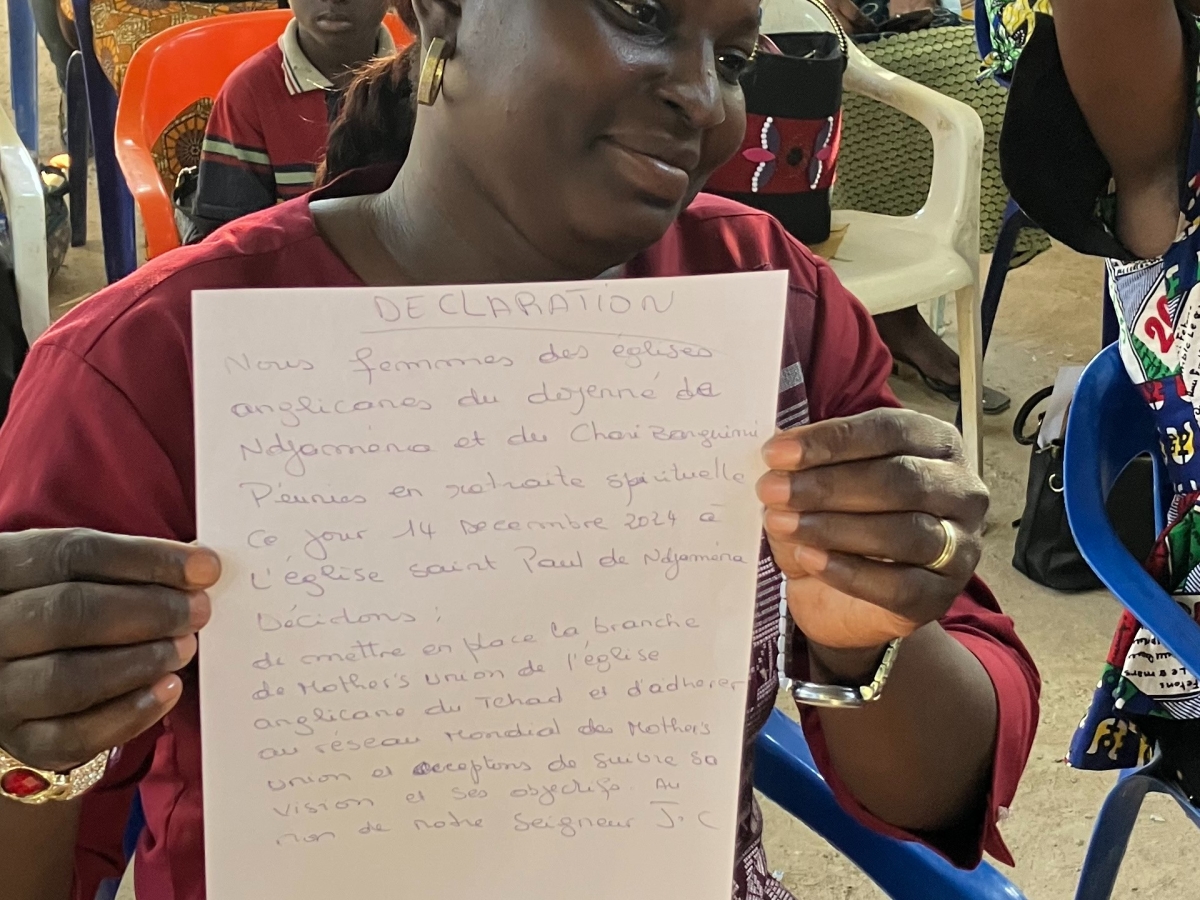 DECLARATION
Nous femmes des églises
anglicanes du doyenné de
Ndjaména et du Chari Banguimi
Réunies en retraite spirituelle
Ce jour 14 Decembre 2024 à
L'église saint Paul de Ndjaména
Décidons :
de mettre en place la branche
de Mother's Union de l'église
anglicane du Tchad et d'adherer
au réseau Mondial des Mothers
Union et acceptons de suivre sa
vision et ses objectifs. Au
nom de notre Seigneur J.C
20
Fetons